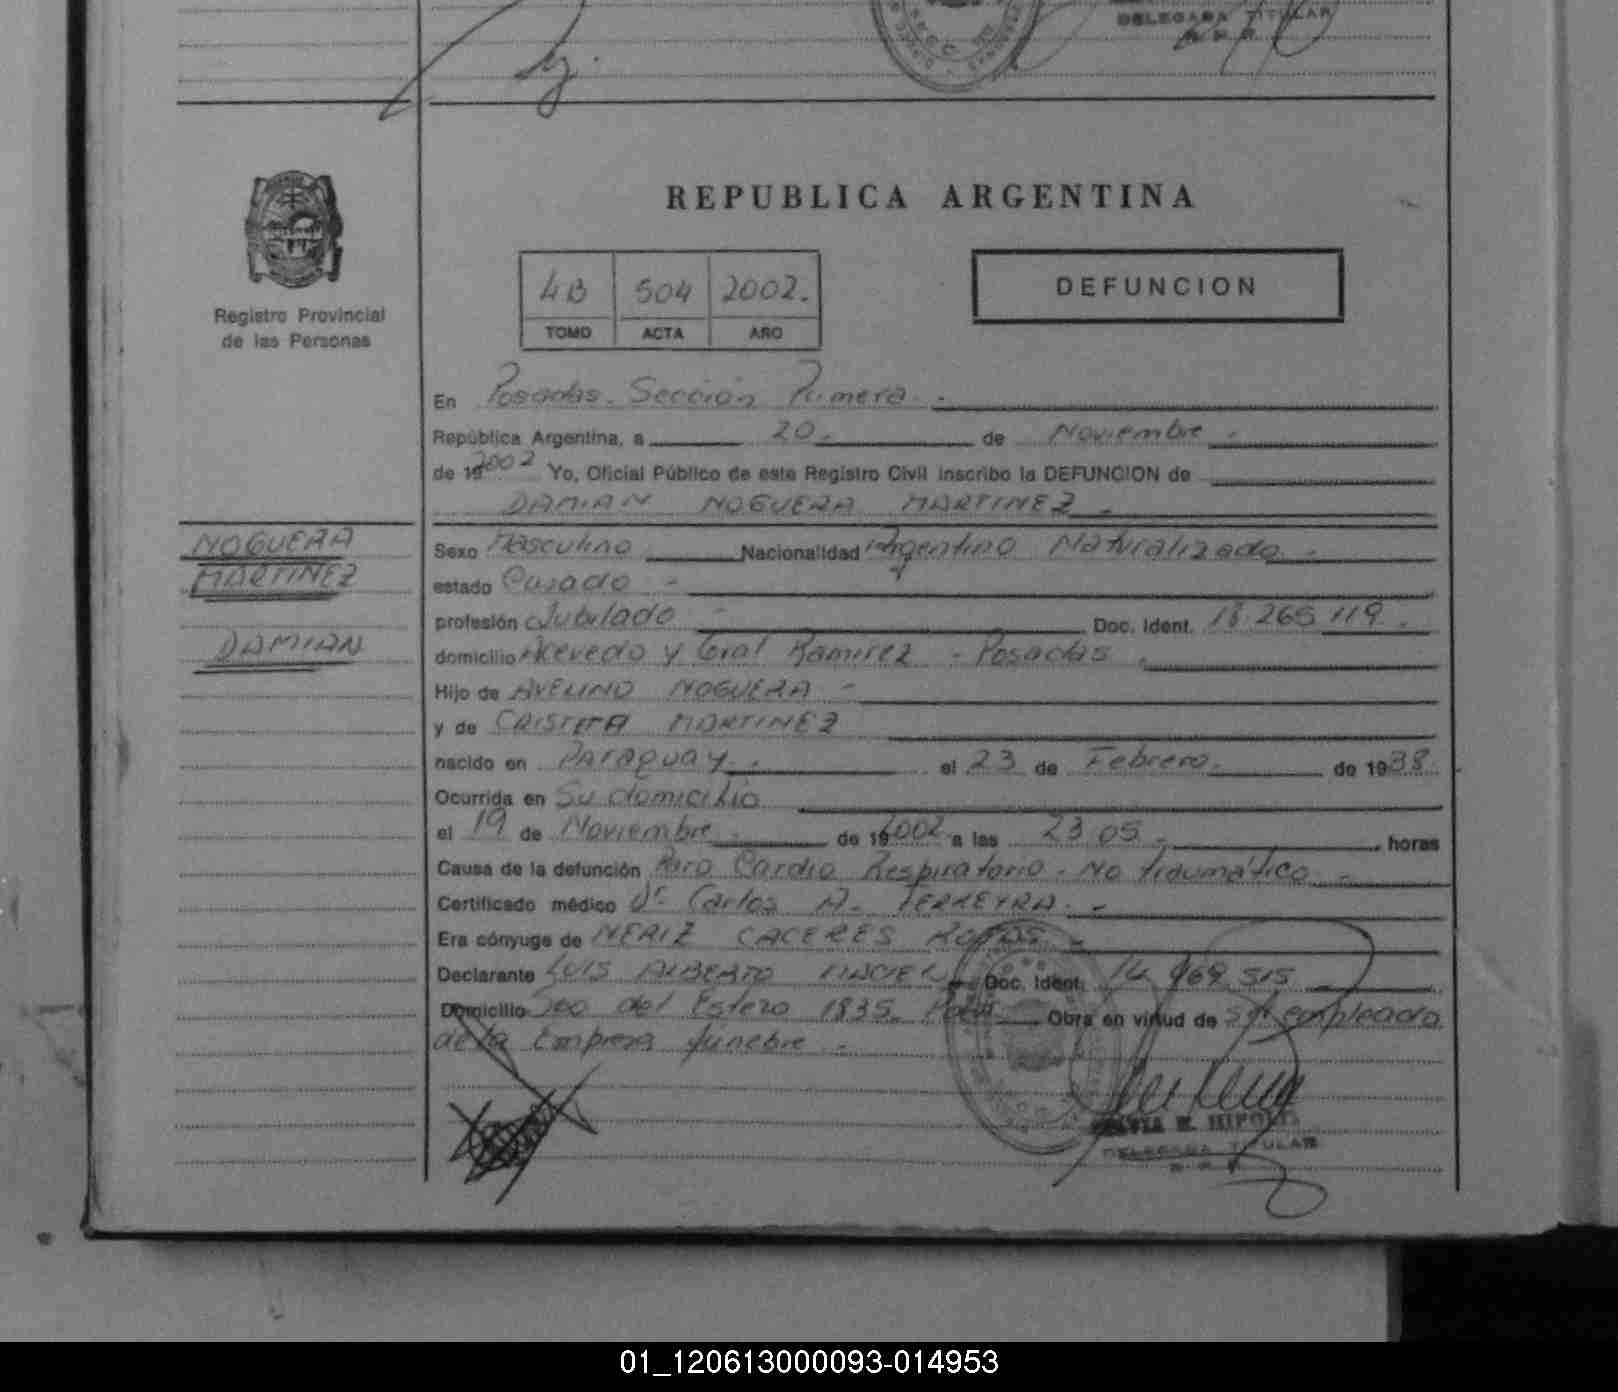 DELEGADA TITULAR
R. P. P.
REPUBLICA ARGENTINA
4B 504 2002.
TOMO ACTA AÑO
DEFUNCION
Registro Provincial
de las Personas
En Posadas. Sección Primera.
República Argentina, a 20. de Noviembre
de 19 2002 Yo, Oficial Público de este Registro Civil inscribo la DEFUNCION de
DAMIAN NOGUERA MARTINEZ.
NOGUERA
MARTINEZ
DAMIAN
Sexo Masculino Nacionalidad Argentino Naturalizado
estado Casado
profesión Jubilado Doc. Ident. 18.265.119.
domicilio Acevedo y Gral Ramirez - Posadas
Hijo de AVELINO NOGUERA
y de MARTINEZ
nacido en Paraguay. el 23 de Febrero. de 1938
Ocurrida en Su domicilio
el 19 de Noviembre de 19 2002 a las 23 05 horas
Causa de la defunción Paro Cardio Respiratorio. No traumático
Certificado médico Dr. Carlos A. FERREYRA.
Era cónyuge de NERIZ CACERES ROJAS
Declarante LUIS ALBERTO MACIEL Doc. Ident. 14.969.515
Domicilio Sgo del Estero 1835. Obra en virtud de ser empleado
de la Empresa fúnebre.
HIPOLITO
DELEGADA TITULAR
R. P. P.
01_120613000093-014953